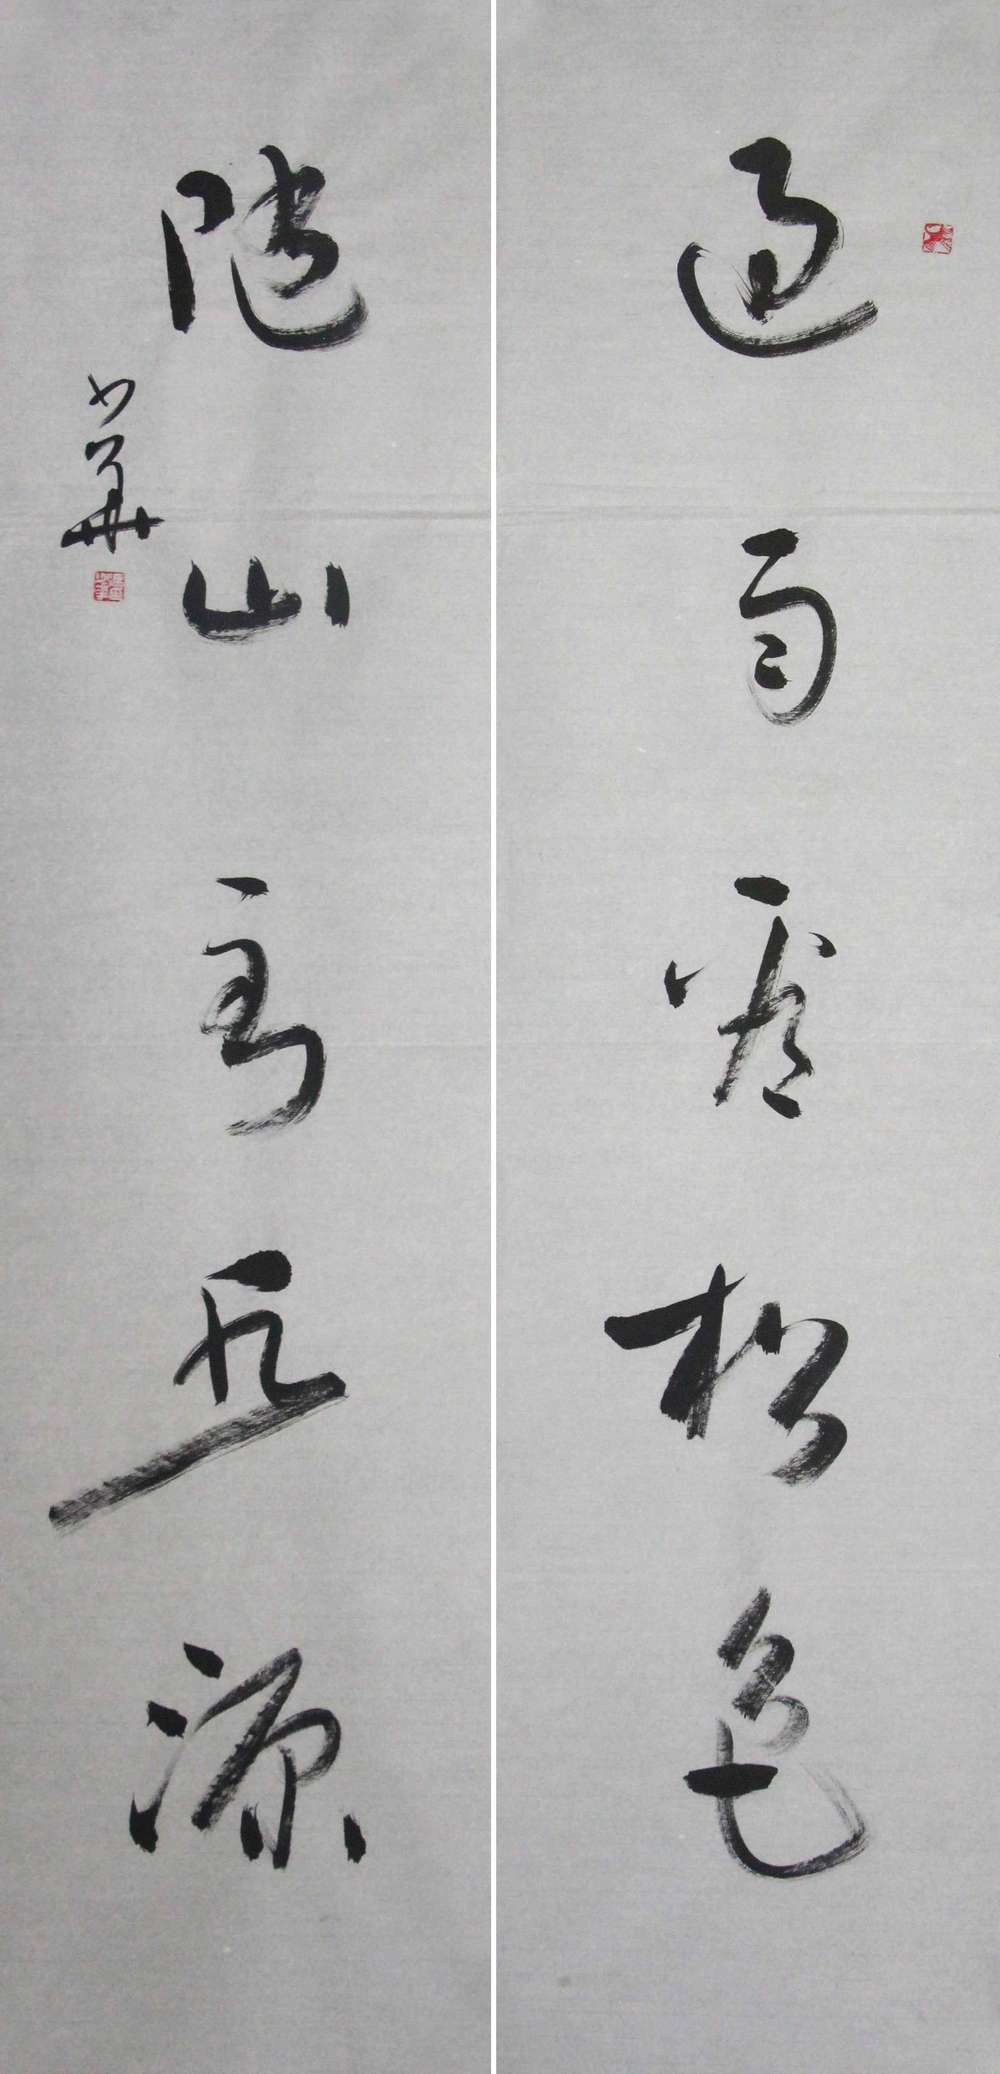 過雨看松色
隨山到水源
少華